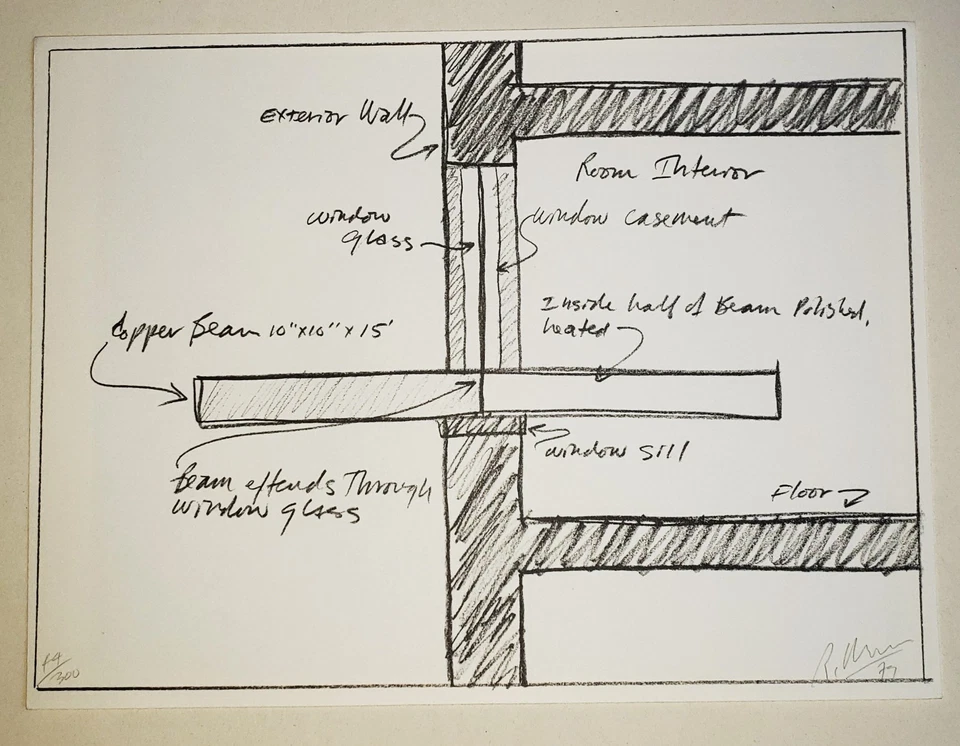 Exterior Wall
Room Interior
window
glass
window casement
Inside half of Beam Polished,
heated
Copper Beam 10"x10" x 15'
window sill
Beam extends Through
window glass
Floor
/300